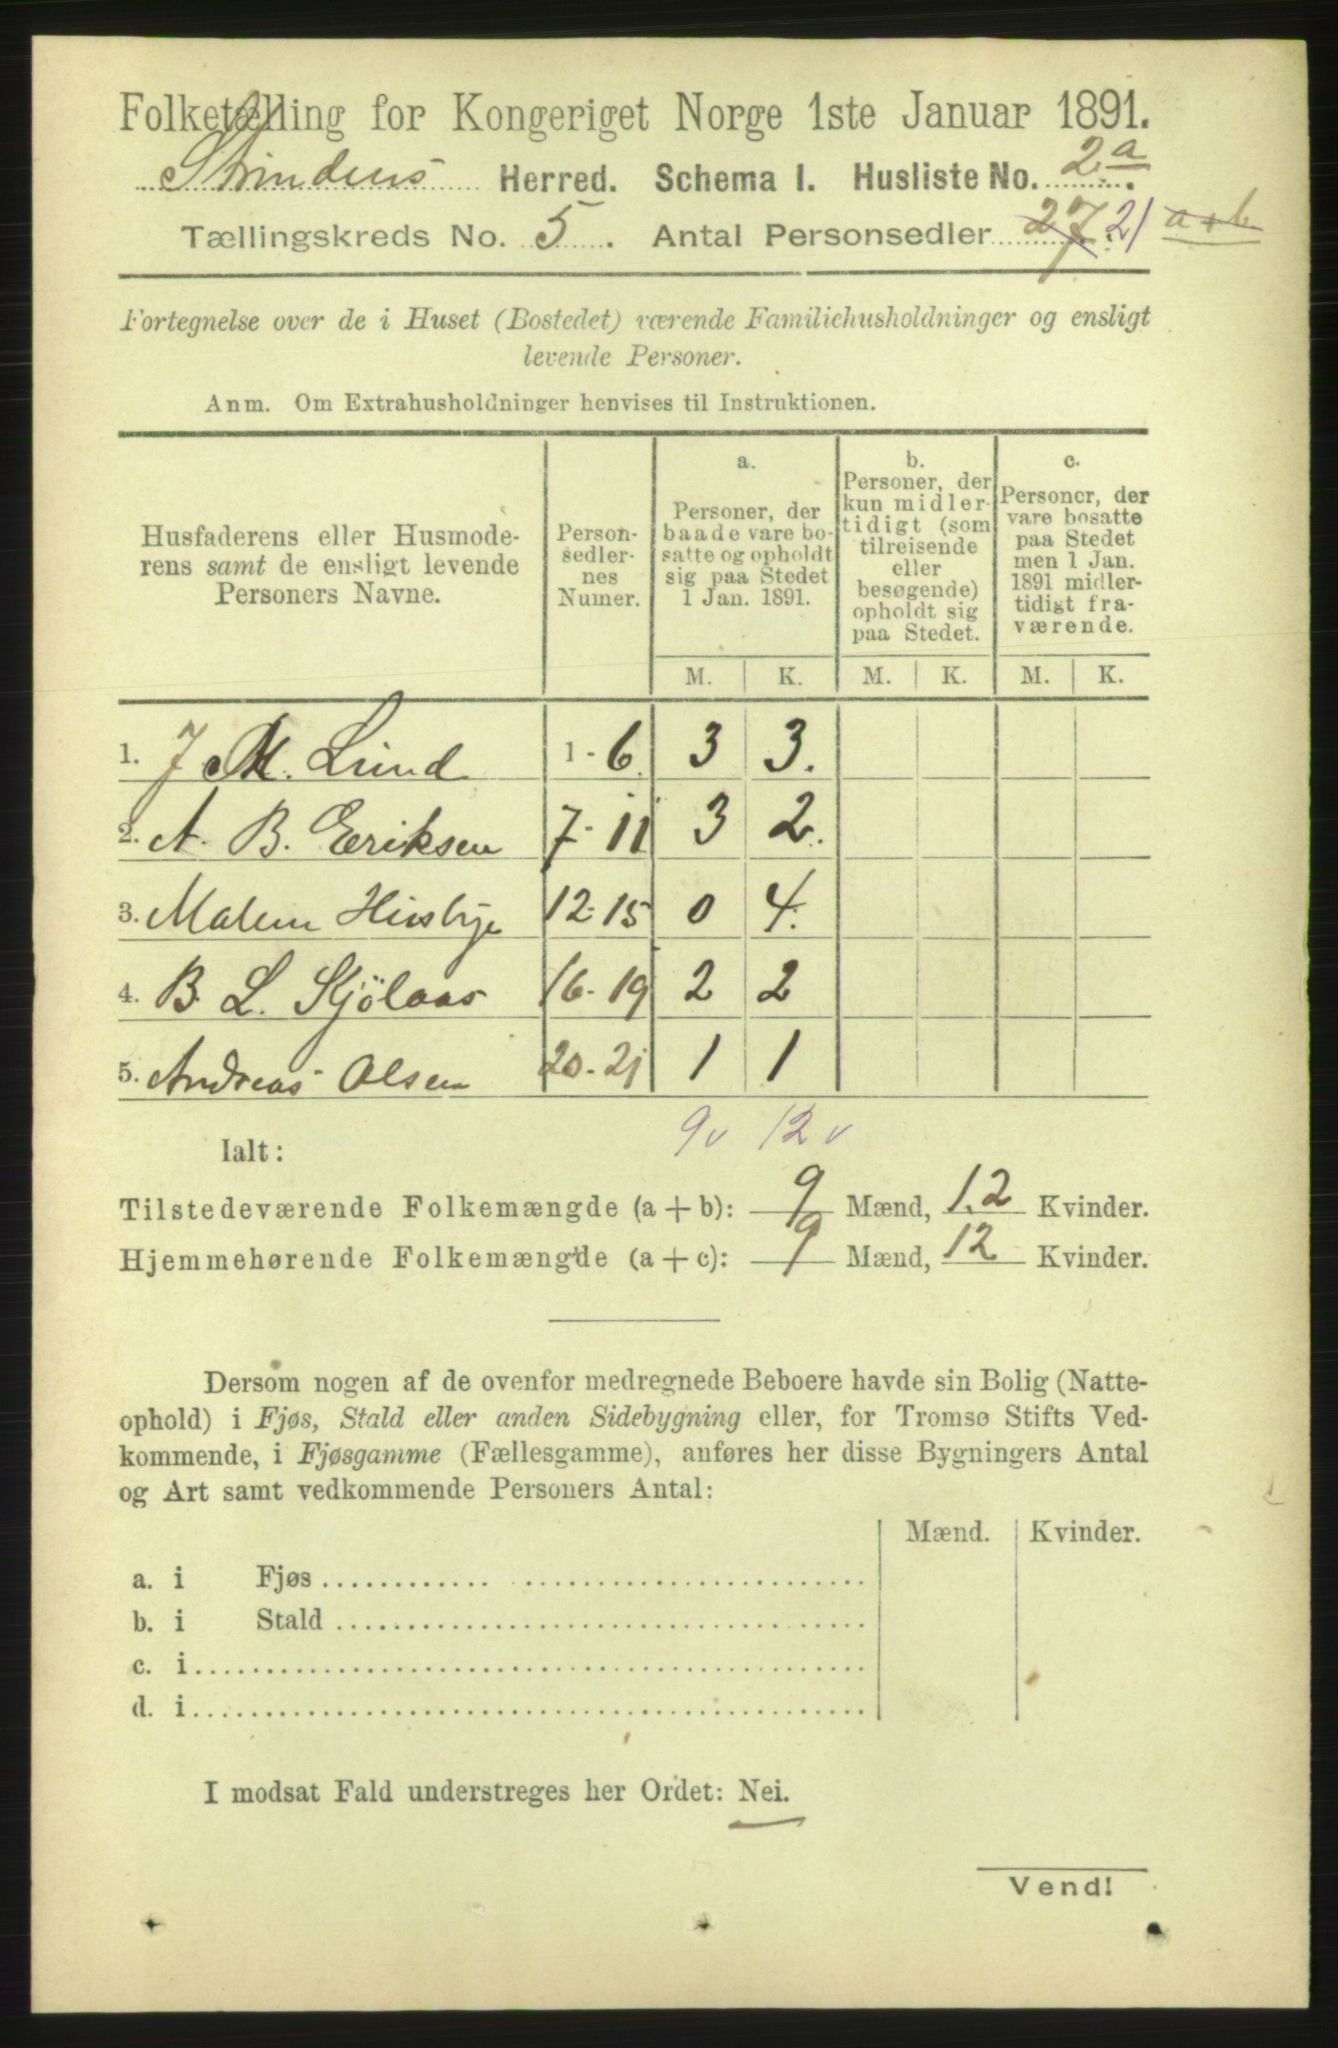 Folketælling for Kongeriget Norge 1ste Januar 1891.
Strindens Herred. Schema I. Husliste No. 2a
Tællingskreds No. 5. Antal Personsedler 27 21 a+b
Fortegnelse over de i Huset (Bostedet) værende Familiehusholdninger og ensligt
levende Personer.
Anm. Om Extrahusholdninger henvises til Instruktionen.
Husfaderens eller Husmode-
rens samt de ensligt levende
Personers Navne.
Person-
sedler-
nes
Numer.
a.
Personer, der
baade vare bo-
satte og opholdt
sig paa Stedet
1 Jan. 1891.
b.
Personer, der
kun midler-
tidigt (som
tilreisende
eller
besøgende)
opholdt sig
paa Stedet.
c.
Personer, der
vare bosatte
paa Stedet
men 1 Jan.
1891 midler-
tidigt fra-
værende.
M. K. M. K. M. K.
1. J M. Lund 1-6 3 3.
2. A. B. Eriksen 7-11 3 2.
3. Malena Husbye 12-15 0 4.
4. B. L. Stjölaas 16-19 2 2
5. Andreas Olsen 20-21 1 1
Ialt: 9 v 12 v
Tilstedeværende Folkemængde (a + b): 9 Mænd, 12 Kvinder.
Hjemmehørende Folkemængde (a + c): 9 Mænd, 12 Kvinder.
Dersom nogen af de ovenfor medregnede Beboere havde sin Bolig (Natte-
ophold) i Fjøs, Stald eller anden Sidebygning eller, for Tromsø Stifts Ved-
kommende, i Fjøsgamme (Fællesgamme), anføres her disse Bygningers Antal
og Art samt vedkommende Personers Antal:
Mænd. Kvinder.
a. i Fjøs
b. i Stald
c. i
d. i
I modsat Fald understreges her Ordet: Nei.
Vend!